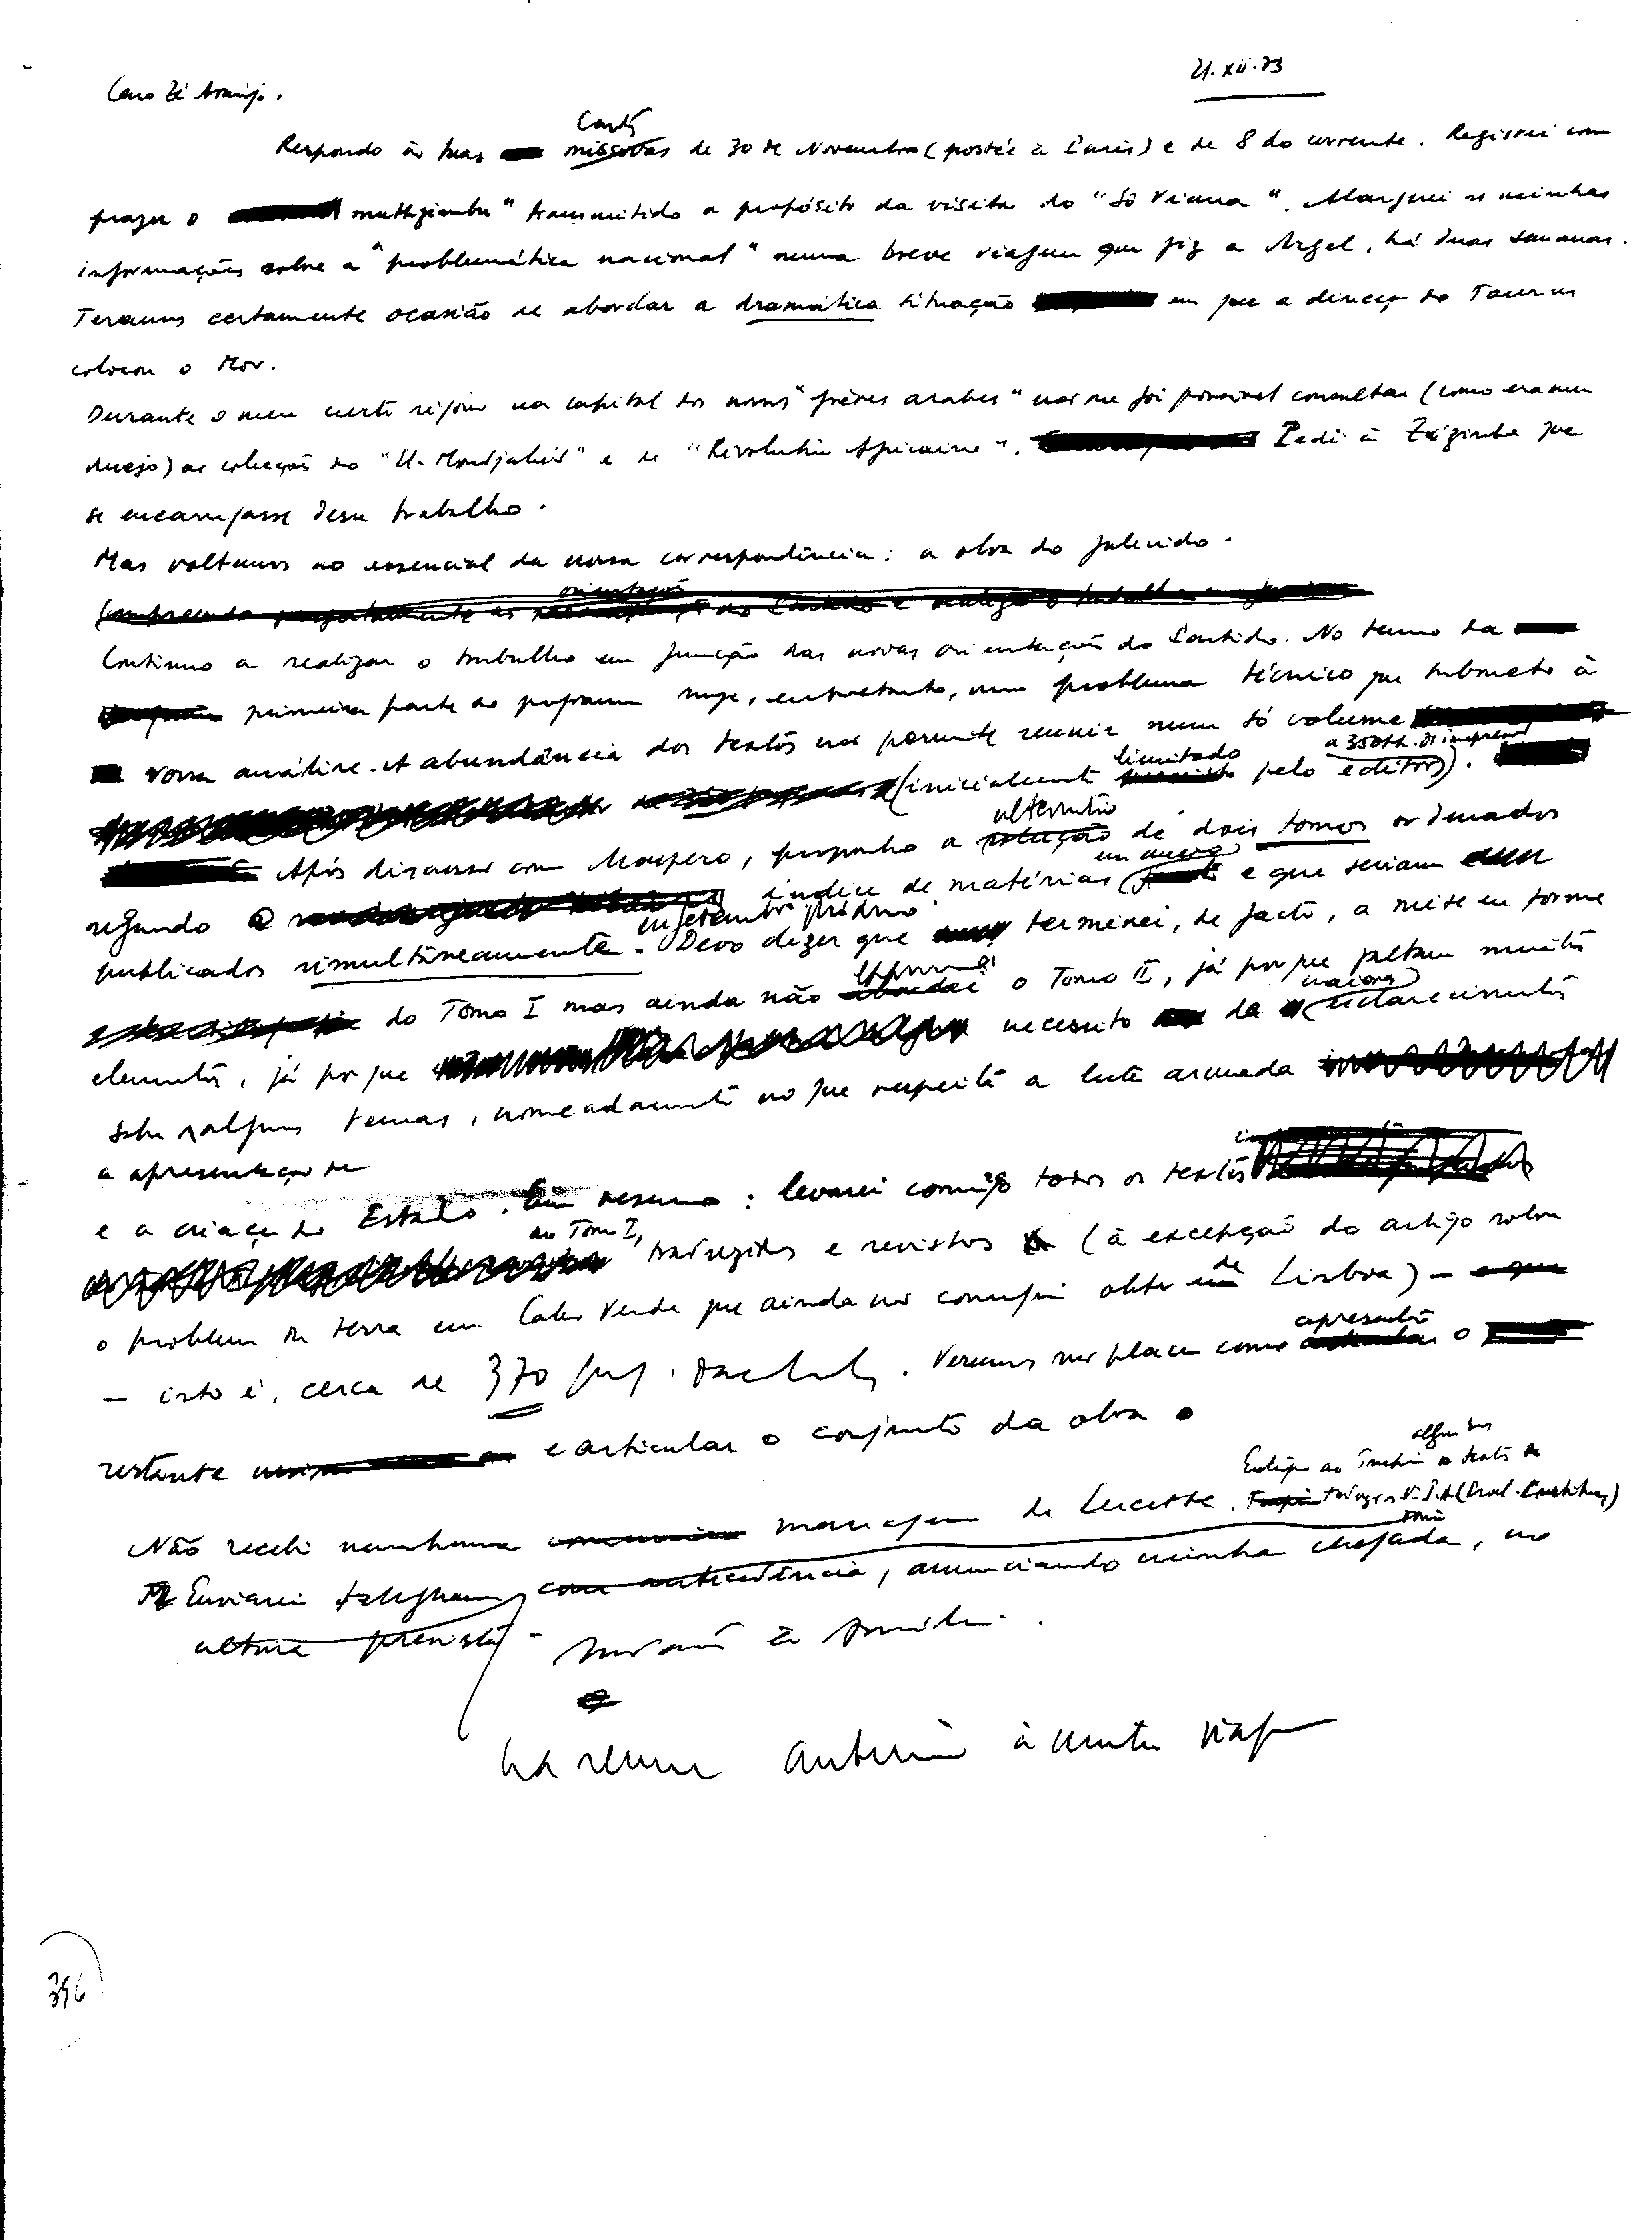 21.XII.73
Caro Zé Araújo.
Respondo às tuas cartas de 30 de Novembro (postée à Paris) e de 8 do corrente. Registei com
prazer o muthgiambu" transmitido a propósito da visita do "Sô Viana". Alarguei as minhas
informações sobre a "problemática nacional" numa breve viagem que fiz a Argel, há duas semanas.
Teremos certamente ocasião de abordar a dramática situação em que a direcção do
colocou o Mov.
Durante o meu curto séjour na capital dos nossos "frères arabes" não me foi possível consultar (como era meu
desejo) as colecções do "El-Moudjahid" e de "Révolution Africaine". Pedi à que
se encarregasse desse trabalho.
Mas voltemos ao essencial da nossa correspondência: a obra do falecido.
Continuo a realizar o trabalho em função das novas orientações do Partido. No termo da
primeira parte do programa surge, entretanto, um problema técnico que submeto à
vossa análise. A abundância dos textos não permite reunir num só volume
(inicialmente limitado a 350 pelo editor).
Após discussão com Maspero, proponho a alternativa de dois tomos ordenados
segundo índice de matérias em anexo e que seriam
publicados simultâneamente em setembro próximo. Devo dizer que terminei, de facto, a mise en forme
do Tomo I mas ainda não o Tomo II, já porque faltam muitos
elementos, já porque necessito de maiores esclarecimentos
sobre alguns temas, nomeadamente no que respeita a luta armada
a apresentação de
e a criação do Estado. Em resumo: levarei comigo todos os textos
do Tomo I, traduzidos e revistos (à excepção do artigo sobre
o problema da terra em Cabo Verde que ainda não consegui obter de Lisboa) -
- isto é, cerca de 370 pág. Veremos sur place como apresentar o
restante e articular o conjunto da obra.
alguns dos
ao textos de
Não recebi nenhuma mensagem de Lucette.
Enviarei telegrama anunciando minha chegada, na
altura prevista.
396